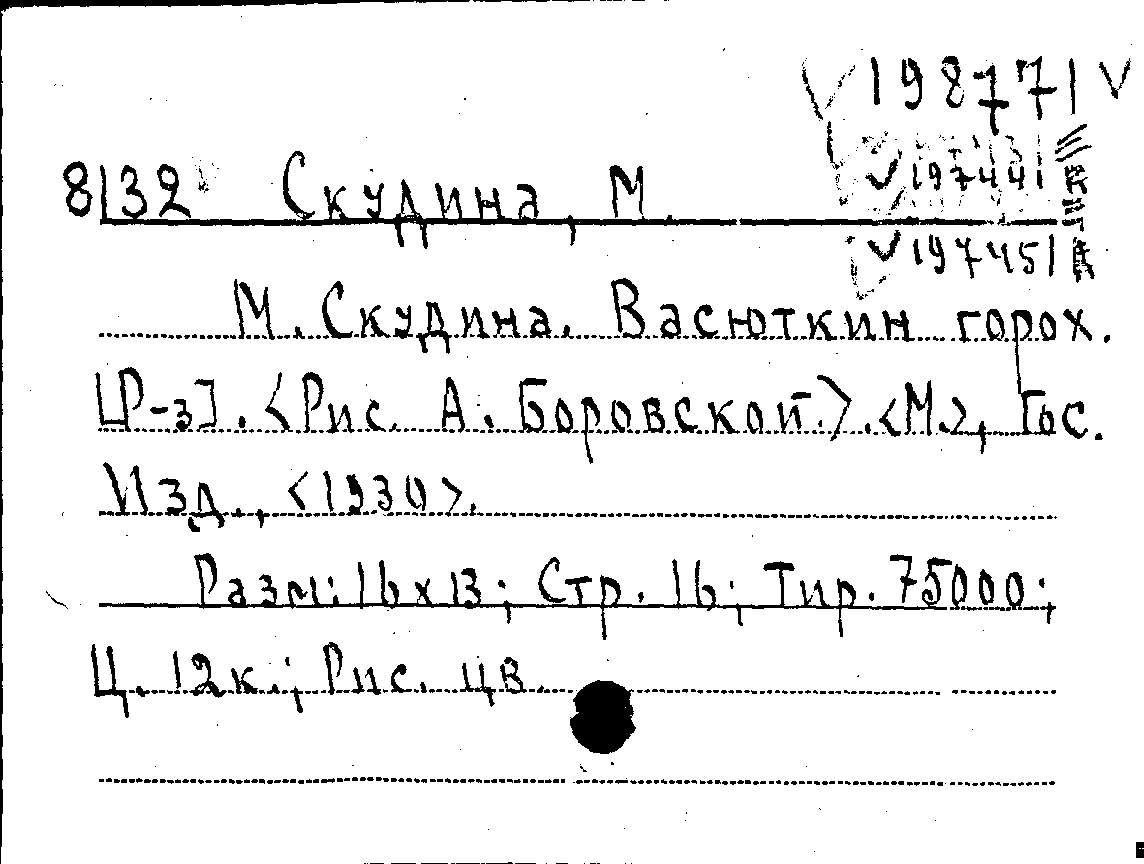 V 198771 V
V 197441
8132 Скудина, М.
V 197451
М. Скудина. Васюткин горох.
[Р-з]. <Рис. А. Боровской>. <М.>, Гос.
Изд., <1930>.
Разм: 16х13; Стр. 16; Тир. 75000;
Ц. 12к.; Рис. цв.